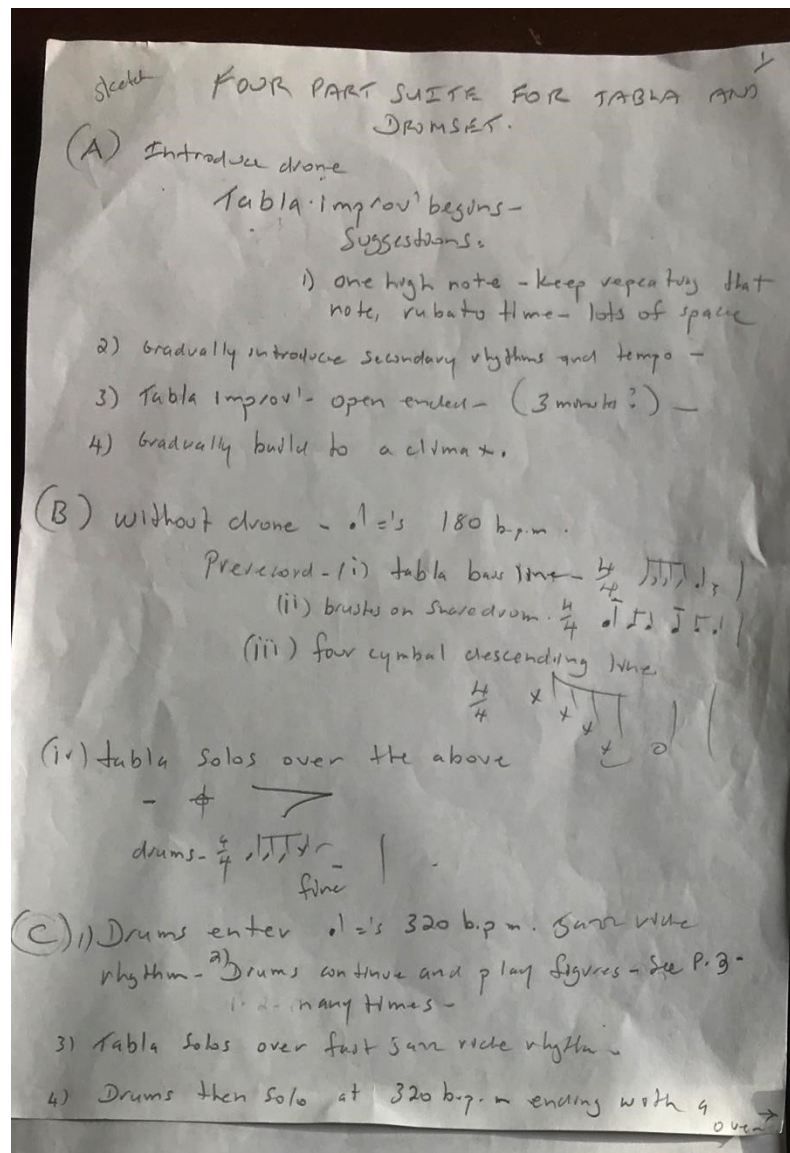 sketch FOUR PART SUITE FOR TABLA AND
DRUMSET.
(A) Introduce drone
Tabla improv' begins -
Suggestions:
1) one high note - keep repeating that
note, rubato time - lots of space
2) Gradually introduce secondary rhythms and tempo -
3) Tabla Improv' - open ended - (3 minutes?) -
4) Gradually build to a climax.
(B) without drone - ♩='s 180 b.p.m.
Prerecord - (i) tabla bass line - 4/4
(ii) brushes on snare drum. 4/4
(iii) four cymbal descending line
4/4
(iv) tabla solos over the above
drums - 4/4
fine
(C) 1) Drums enter ♩='s 320 b.p.m. Jazz ride
rhythm - 2) Drums continue and play figures - See P. 3 -
many times -
3) Tabla Solos over fast Jazz ride rhythm.
4) Drums then Solo at 320 b.p.m ending with a
over →